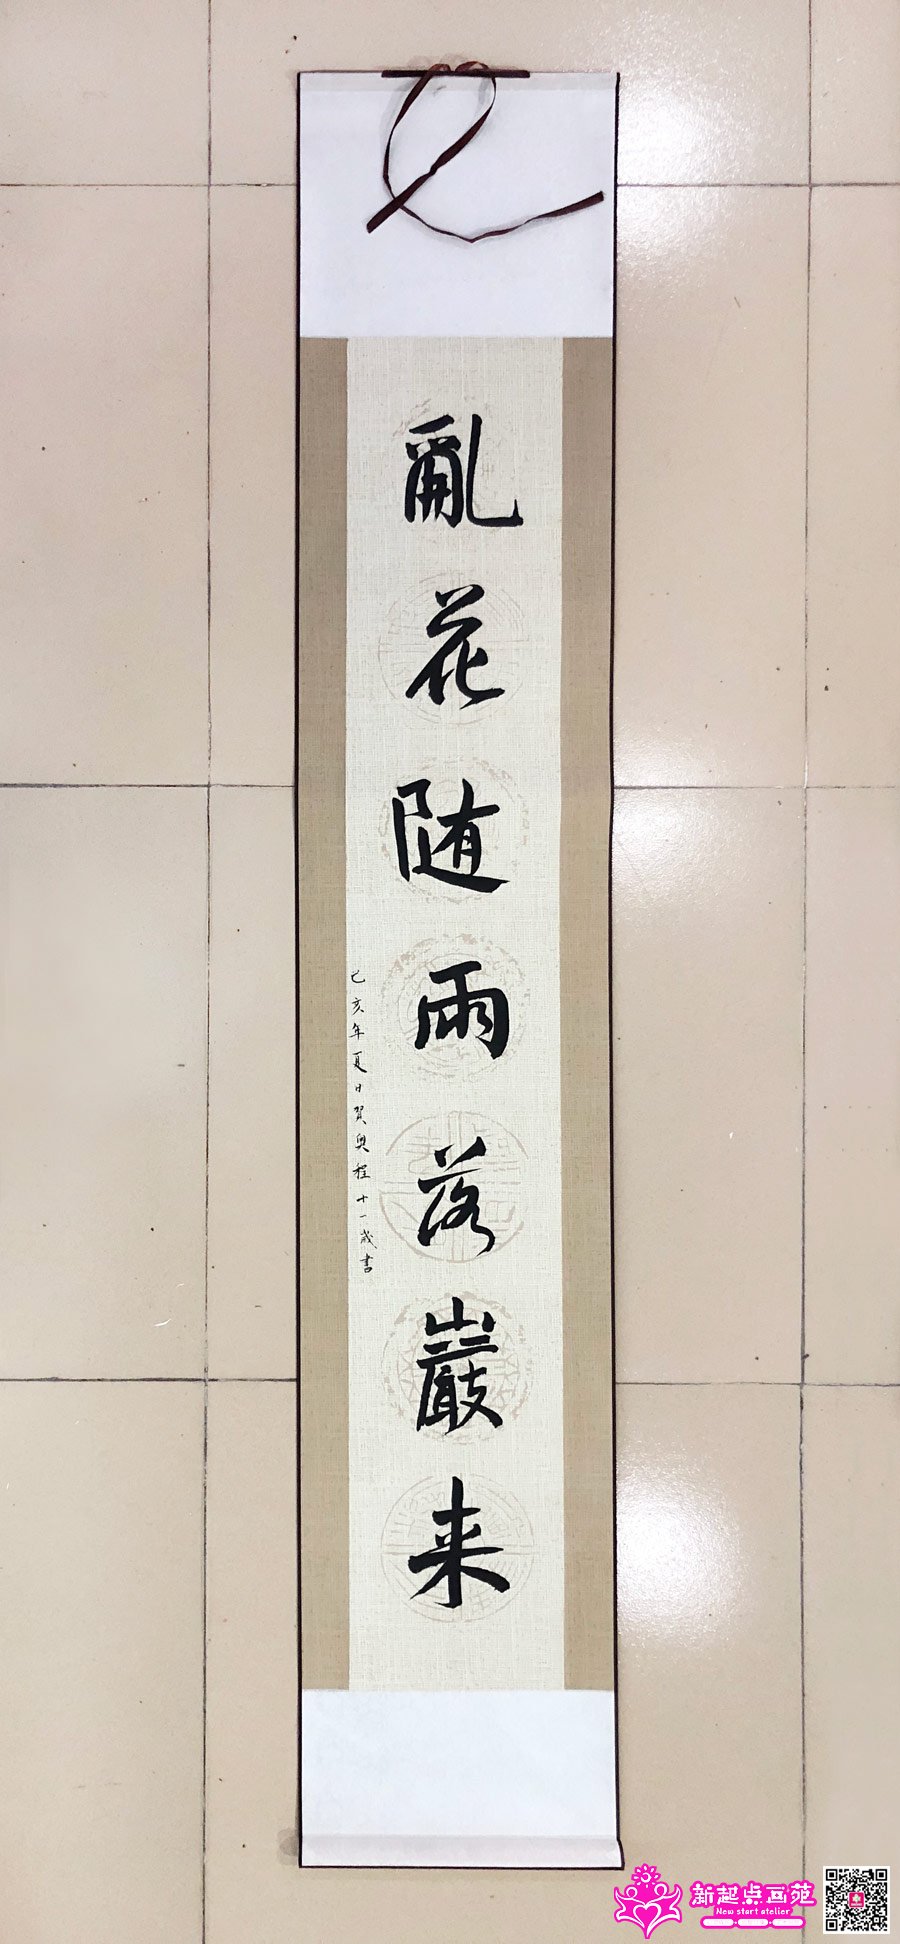 亂花随雨落巖来
己亥年夏日贺奥程十一歲書
新起点画苑
New start atelier